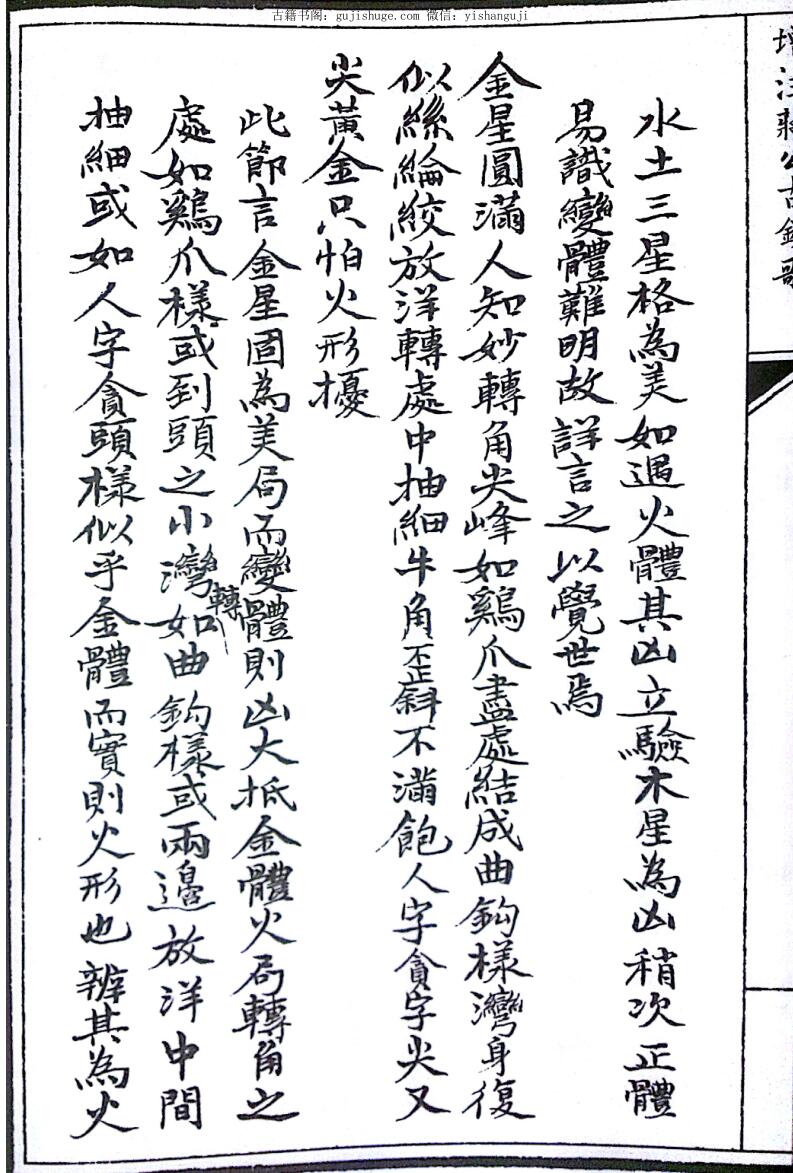 古籍书阁：gujishuge.com 微信：yishanguji
增注蔣公古鏡歌
水土三星格為美如遇火體其凶立驗木星為凶稍次正體
易識變體難明故詳言之以覺世焉
金星圓滿人知妙轉角尖峰如鷄爪盡處結成曲鈎樣灣身復
似絲綸絞放洋轉處中抽細牛角歪斜不滿飽人字貪字尖又
尖黃金只怕火形擾
此節言金星固為美局而變體則凶大抵金體火局轉角之
處如鷄爪樣或到頭之小灣轉如曲鈎樣或兩邉放洋中間
抽細或如人字貪頭樣似乎金體而實則火形也辨其為火